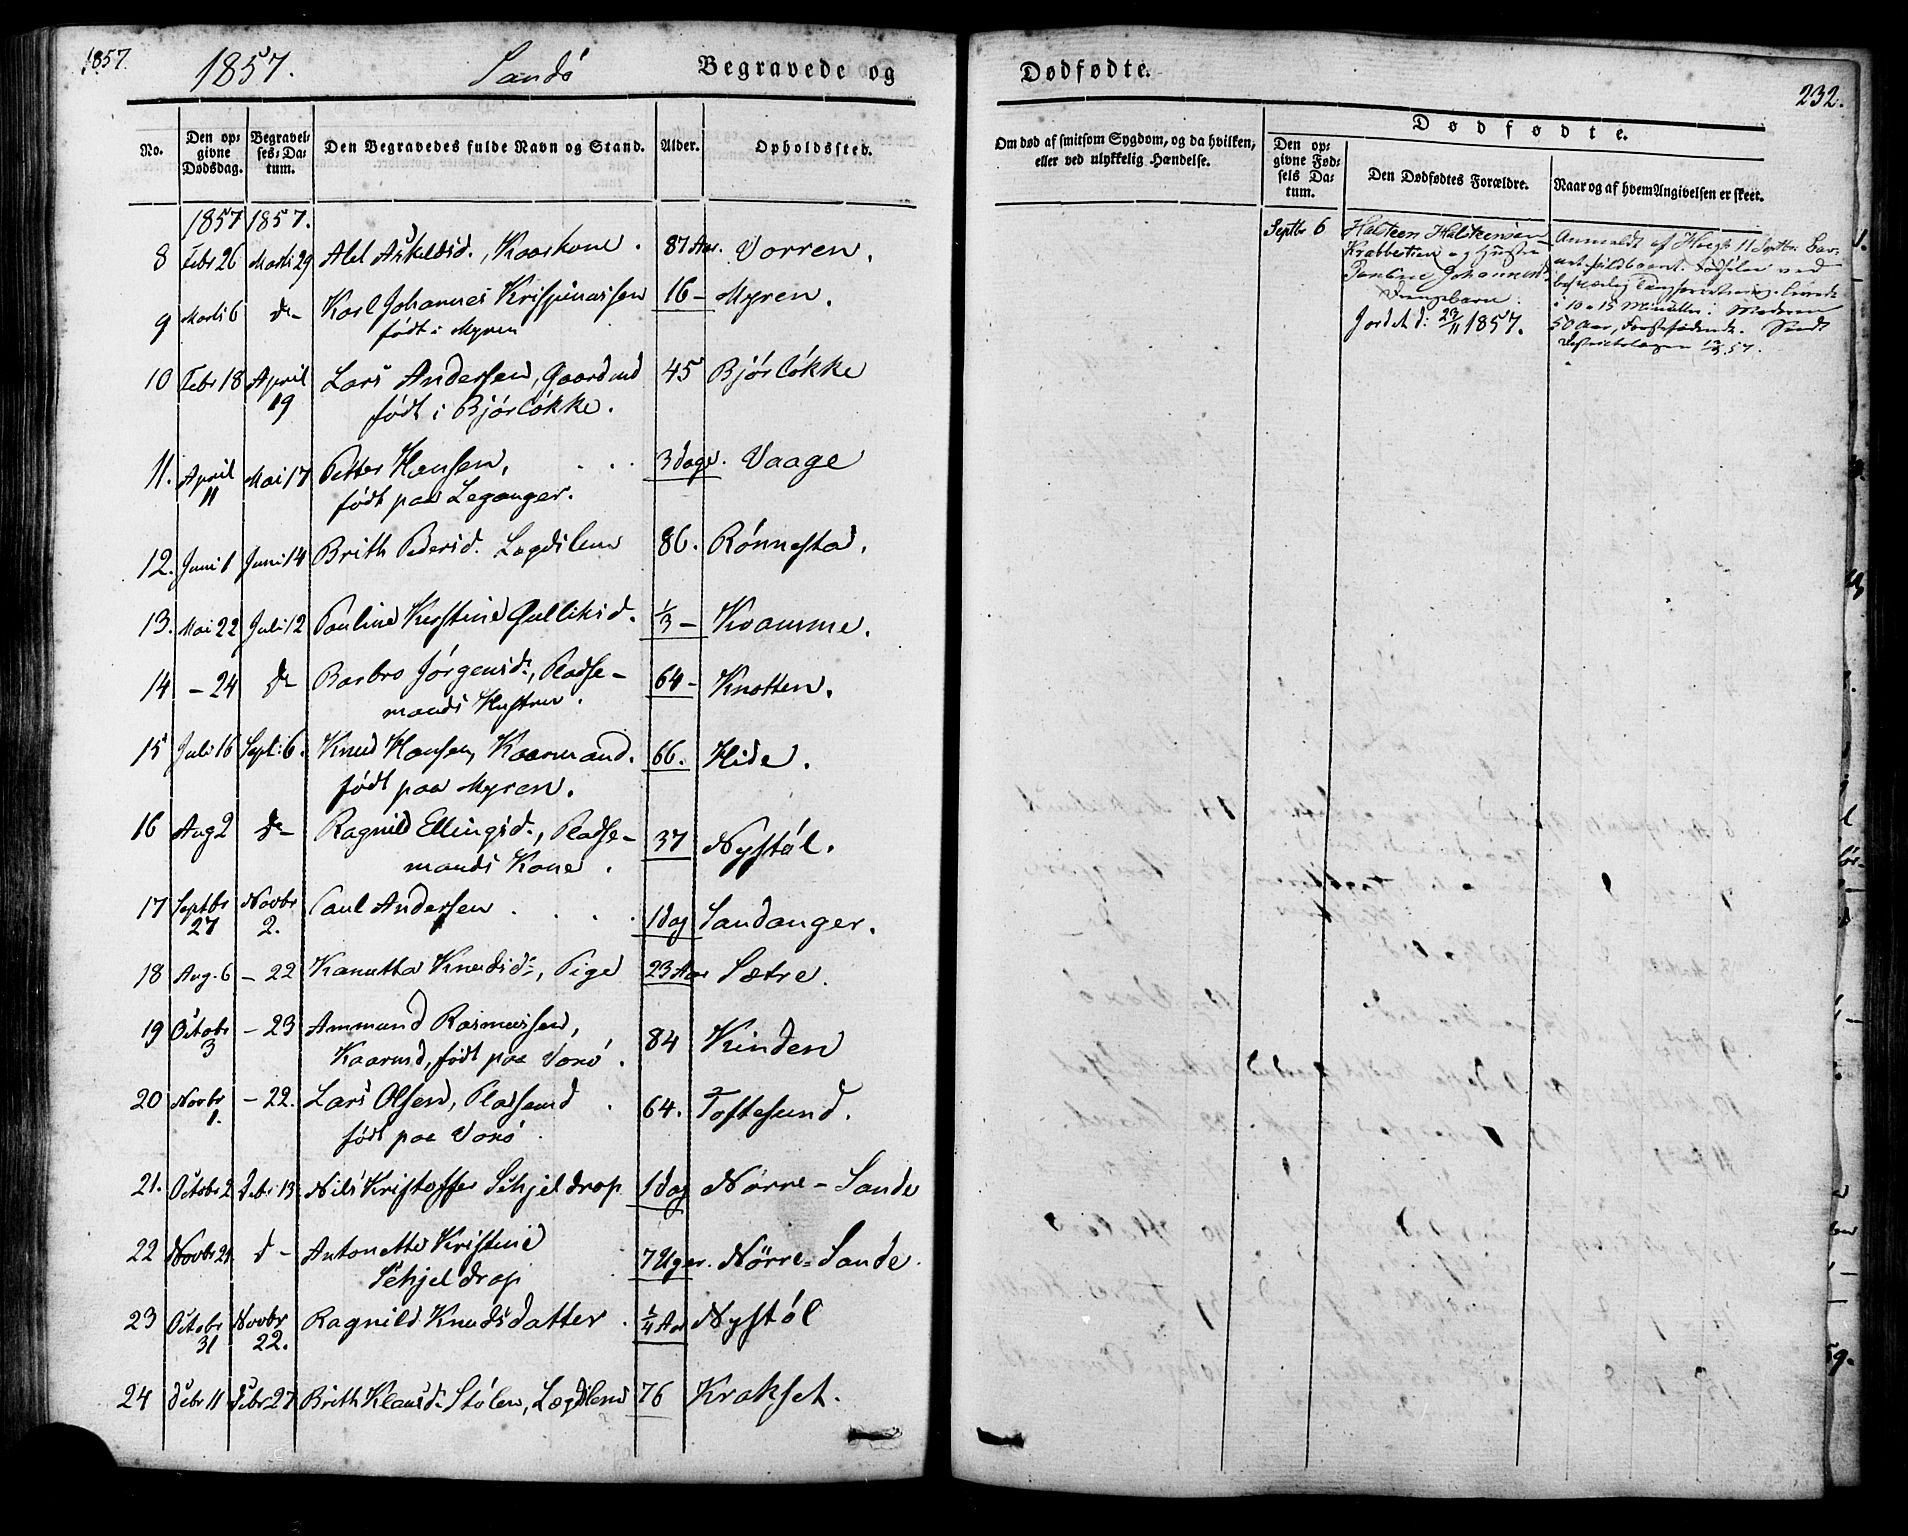 1857.
1857. Sandö Begravede og
No.
Den op=
givne
Dødsdag.
Begravel=
ses=Da=
tum.
Den Begravedes fulde Navn og Stand.
Alder.
Opholdssted.
1857 1857.
8 Febr 26 Marti 29 Abel Askeldsd., Kaarkone. 87 Aar. Vorren.
9 Marti 6 do Karl Johannes Krispinussen 16 - Myren.
født i Myren
10 Febr 18 April 19 Lars Andersen, Gaardmd 45 Bjórlókke
født i Bjórlókke.
11. April 11 Mai 17 Petter Hansen, . . . 3 dage. Vaage
født paa Leganger.
12. Juni 1 Juni 14 Brith Pedersd. Lægdslem 86. Rónnestad.
13. Mai 22 Juli 12 Pauline Kirstine Gulliksd. 1/3 - Kvamme.
14 - 24 do Barbro Jórgensd:, Pladse-
mands Hustru. 64 - Knotten.
15 Juli 16 Sept: 6. Knud Hansen, Kaarmand. 66. Hide.
født paa Myren.
16 Aug 2 do Ragnild Ellingsd:, Pladse-
mands Kone. 37 Nystól.
17 Septbr 27 Novbr 2. Paul Andersen . . . 1 dag Sandanger.
18 Aug. 6 - 22 Kanutta Knudsd:, Pige 23 Aar Sætre.
19 Octobr 3 - 23 Ammund Rasmussen,
Kaarmd, født paa Voxó. 84 Kinden
20 Novbr 1. - 22. Lars Olsen, Pladsemd . 64. Toftesund.
født paa Voxó.
21. Octobr 2 Debr 13 Nils Kristoffer Schjeldrop 1 dag Nórre-Sande
22 Novbr 21 d- Antonette Kristine
Schjeldrop 7 Uger. Nörre-Sande.
23 Octobr 31 Novbr 22. Ragnild Knudsdatter . 1/4 Aar Nystól
24 Debr 11 Debr 27 Brith Klausd: Stólen, Lægdslem 76 Krakset.
Dødfødte.
232.
Om død af smitsom Sygdom, og da hvilken,
eller ved ulykkelig Hændelse.
Dødfødte.
Den op=
givne Fød=
sels Da=
tum.
Den Dødfødtes Forældre.
Naar og af hvem Angivelsen er skeet.
Septbr 6
Halsteen Halstensen
Krabbestien og Hustru
Pauline Johannesd:
Drengebarn.
Jordet d: 23/11 1857.
Anmeldt af 11 Septbr: Bar-
net fuldbaaret. Fødselen ved
i 10 a 15 Minuter. Moderen
50 Aar, Førstefødende. Sendt
Districtslægen 57.